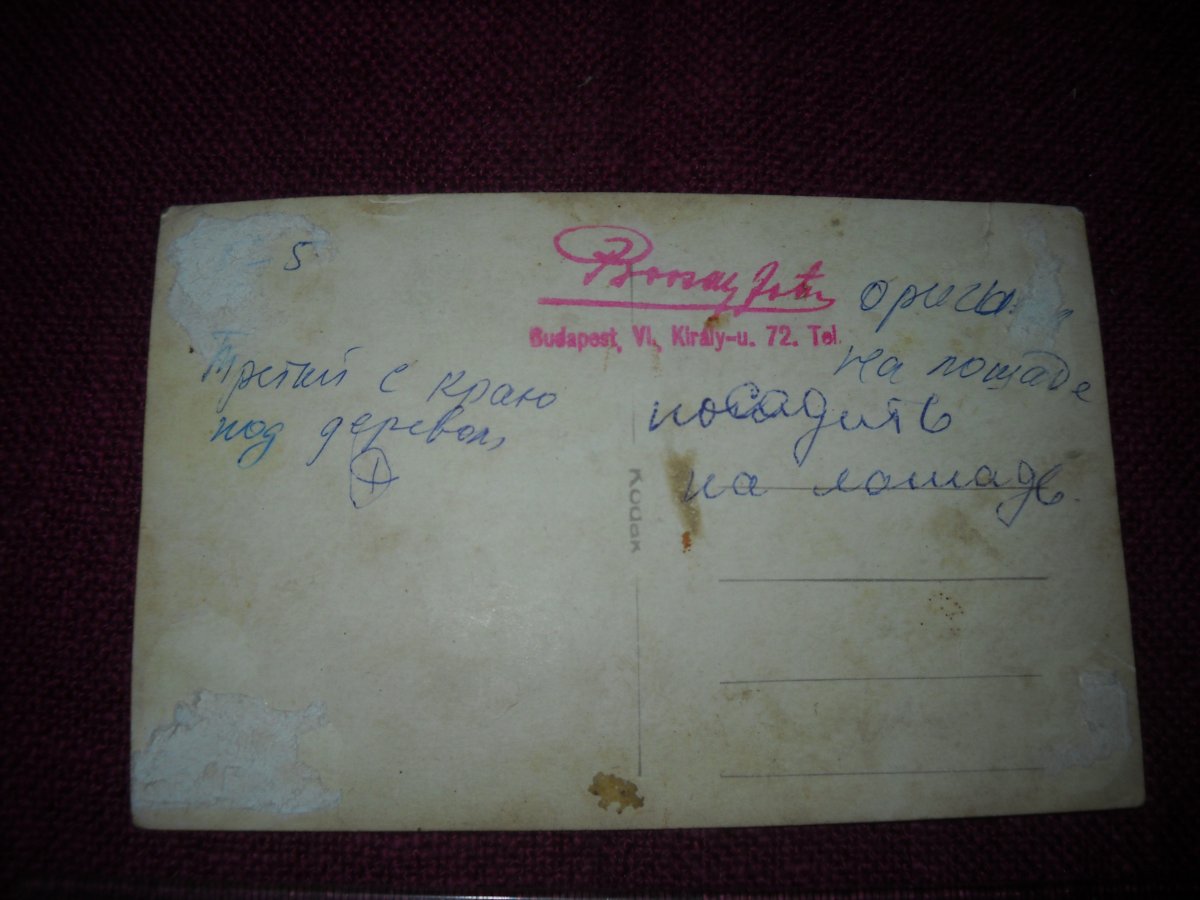 5
Budapest, VI., Király-u. 72. Tel.
на лошаде
Третий с краю
под деревом,
посадить
на лошадь.
Kodak